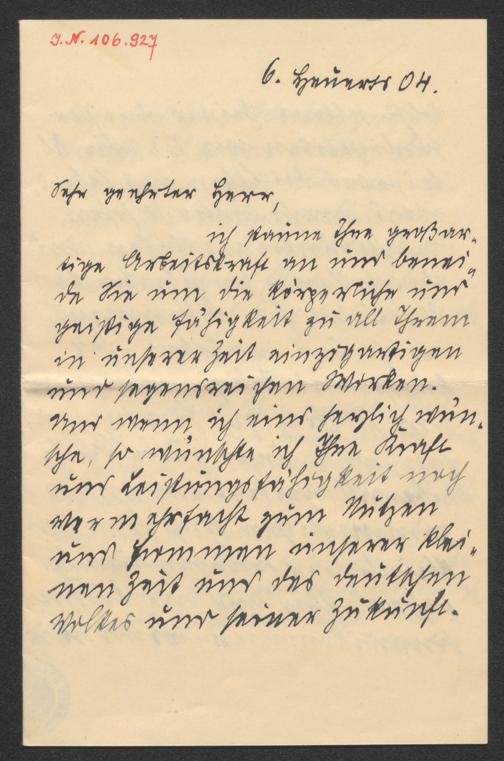 J.N. 106.927
6. Heuerts 04.
Sehr geehrter Herr,
ich staune Ihre großar-
tige Arbeitskraft an und benei-
de Sie um die körperliche und
geistige Fähigkeit zu all Ihrem
in unserer Zeit einzigartigen
und segensreichen Wirken.
Und wenn ich eins herzlich wün-
sche, so wünschte ich Ihre Kraft
und Leistungsfähigkeit noch
vermehrfacht zum Nutzen
und Frommen unserer klei-
nen Zeit und des deutschen
Volkes und seiner Zukunft.